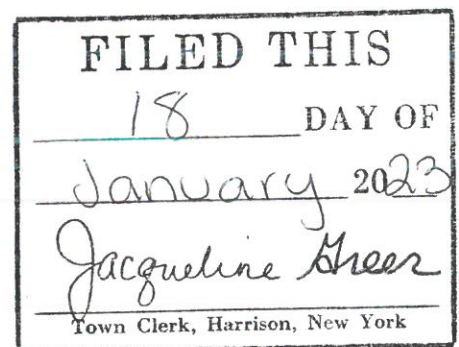 FILED THIS
18 DAY OF
January 2023
Jacqueline Greer
Town Clerk, Harrison, New York